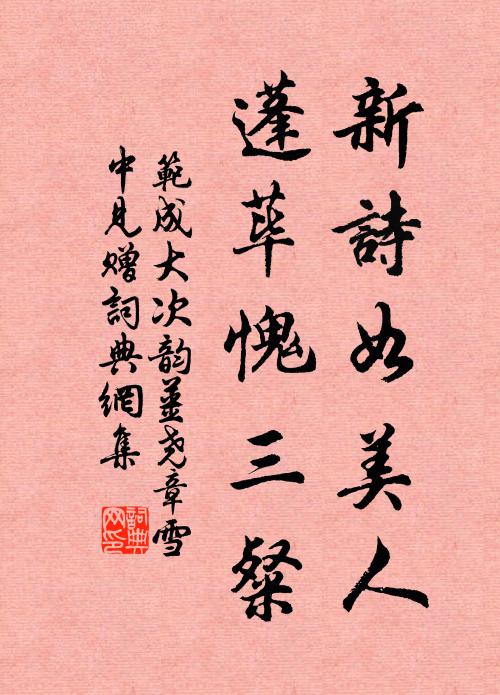 新詩如美人
蓬荜愧三粲
範成大次韵薑尧章雪
中見贈詞典網集
詞典
网印